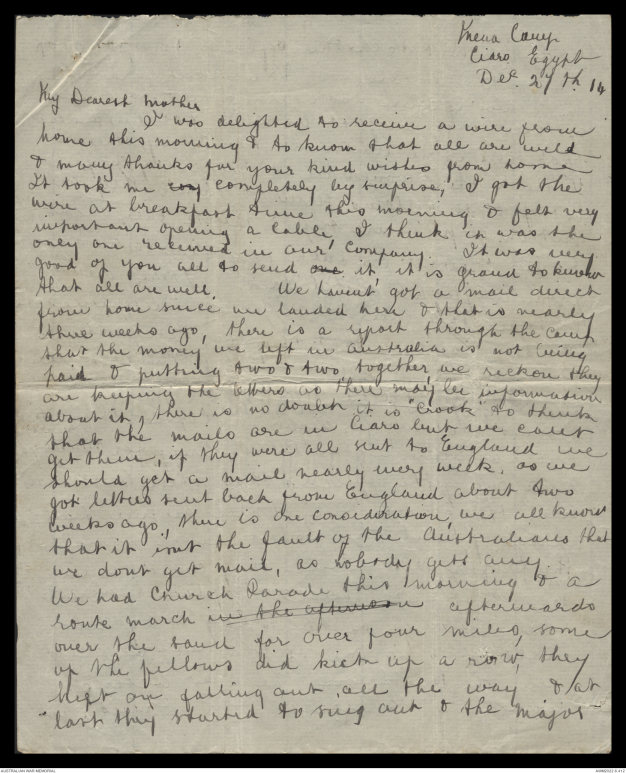 Mena Camp
Ciaro Egypt
Dec. 27th. 14
My Dearest Mother
I was delighted to receive a wire from
home this morning & to know that all are well
& many thanks for your kind wishes from home
It took me completely by surprise, I got the
wire at breakfast time this morning & felt very
important opening a cable I think it was the
only one received in our Company. It was very
good of you all to send one it, it is grand to know
that all are well. We havent got a mail direct
from home since we landed here & that is nearly
three weeks ago, there is a report through the camp
that the money we left in Australia is not being
paid & putting two & two together we reckon they
are keeping the letters as there may be information
about it, there is no doubt it is "crook" to think
that the mails are in Ciaro but we cant
get them, if they were all sent to England we
should get a mail nearly every week, as we
got letters sent back from England about two
weeks ago, there is one consideration, we all know
that it isnt the fault of the Australians that
we dont get mail, as nobody gets any.
We had Church Parade this morning & a
route march in the afternoon afterwards
over the sand for over four miles, some
of the fellows did kick up a row, they
kept on falling out all the way & at
last they started to sing out & the major
AUSTRALIAN WAR MEMORIAL
AWM2022.6.412